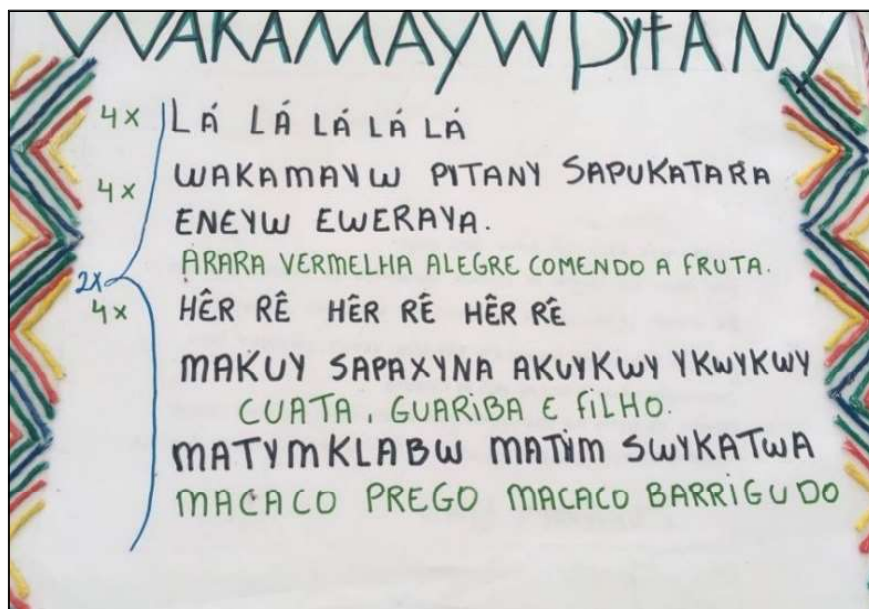 WAKAMAYW PYTANY
4X LÁ LÁ LÁ LÁ LÁ
4X WAKAMAYW PITANY SAPUKATARA
ENEYW EWERAYA.
ARARA VERMELHA ALEGRE COMENDO A FRUTA.
2X
4X HÊR RÊ HÊR RÊ HÊR RÊ
MAKUY SAPAXYNA AKUYKWY YKWYKWY
CUATA, GUARIBA E FILHO.
MATYMKLABW MATYM SWYKATWA
MACACO PREGO MACACO BARRIGUDO